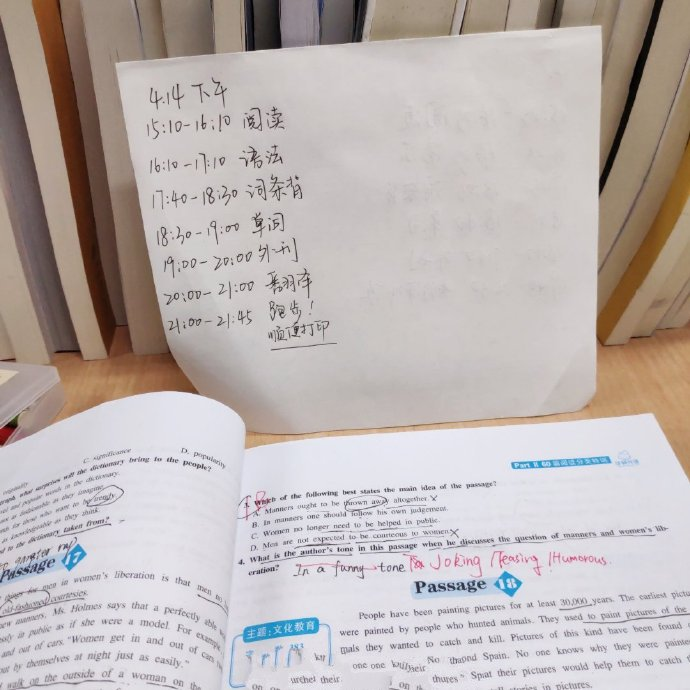 4.14 下午
15:10-16:10 阅读
16:10-17:10 语法
17:40-18:30 词条背
18:30-19:00 单词
19:00-20:00 外刊
20:00-21:00 翻译
21:00-21:45 跑步！
顺便打印
originality
C. significance
D. popularity
graph, what surprise will the dictionary bring to the people?
and popular words in the dictionary.
as they imagine.
for those who want to be trendy.
as knowledgeable as they think.
to the dictionary taken from?
Passage 17
for men in women's liberation is that men no
old-fashioned courtesies.
new manners, Ms. Holmes says that a perfectly
in public as if she were a model. For example,
and out of cars. "Women get in and out of cars
by themselves at night just as easily."
walk on the outside of a woman on the
Part II 60篇阅读分类特训
3. Which of the following best states the main idea of the passage?
A. Manners ought to be thrown away altogether.
B. In manners one should follow his own judgement.
C. Women no longer need to be helped in public.
D. Men are not expected to be courteous to women.
4. What is the author's tone in this passage when he discusses the question of manners and women's lib-
eration?
In a funny tone Joking / Teasing / Humorous.
Passage 18
主题：文化教育
People have been painting pictures for at least 30,000 years. The earliest pictures
were painted by people who hunted animals. They used to paint pictures of the
mals they wanted to catch and kill. Pictures of this kind have been found
Spain. No one knows why they were painted
their pictures would help them to catch
stories in pictures.